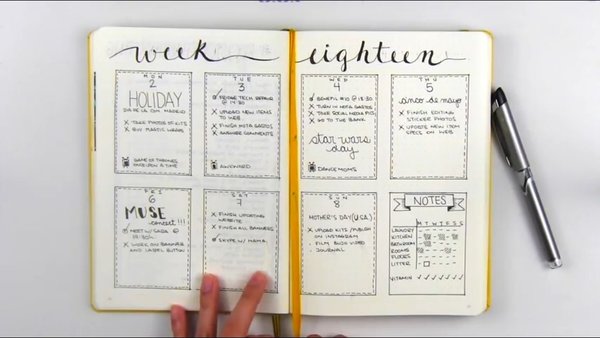 week eighteen
MON
2
HOLIDAY
DIA DE LA COM. MADRID
X TAKE PHOTOS OF KITS
X BUY PLASTIC WRAPS
GAME OF THRONES
ONCE UPON A TIME
TUE
3
FRIDGE TECH REPAIR
@ 14:30
X UPLOAD NEW ITEMS
TO WEB
X FINISH BITA GASTOS
X ANSWER COMMENTS
AWKWARD
WED
4
BENEFIT #10 @ 18:30
X TURN IN NOTA GASTOS
X TAKE SOCIAL MEDIA PICS
X GO TO THE BANK
star wars
day
DANCE MOMS
THU
5
cinco de mayo
X FINISH EDITING
STICKER PHOTOS
X UPDATE NEW ITEM
SPECS ON WEB
FRI
6
MUSE
concert!!!
MEET W/ SARA @
19:30
X WORK ON BANNER
AND LABEL BUTTON
SAT
7
X FINISH UPDATING
WEBSITE
X FINISH ALL BANNERS
SKYPE W/ MAMA
SUN
8
MOTHER'S DAY (USA)
X UPLOAD KITS / PUBLISH
ON INSTAGRAM
- FILM BUJO VIDEO
- JOURNAL
NOTES
M T W T F S S
LAUNDRY
KITCHEN
BATHROOM
ROOMS
FLOORS
LITTER
VITAMIN ✓ ✓ ✓ ✓ ✓ ✓ ✓